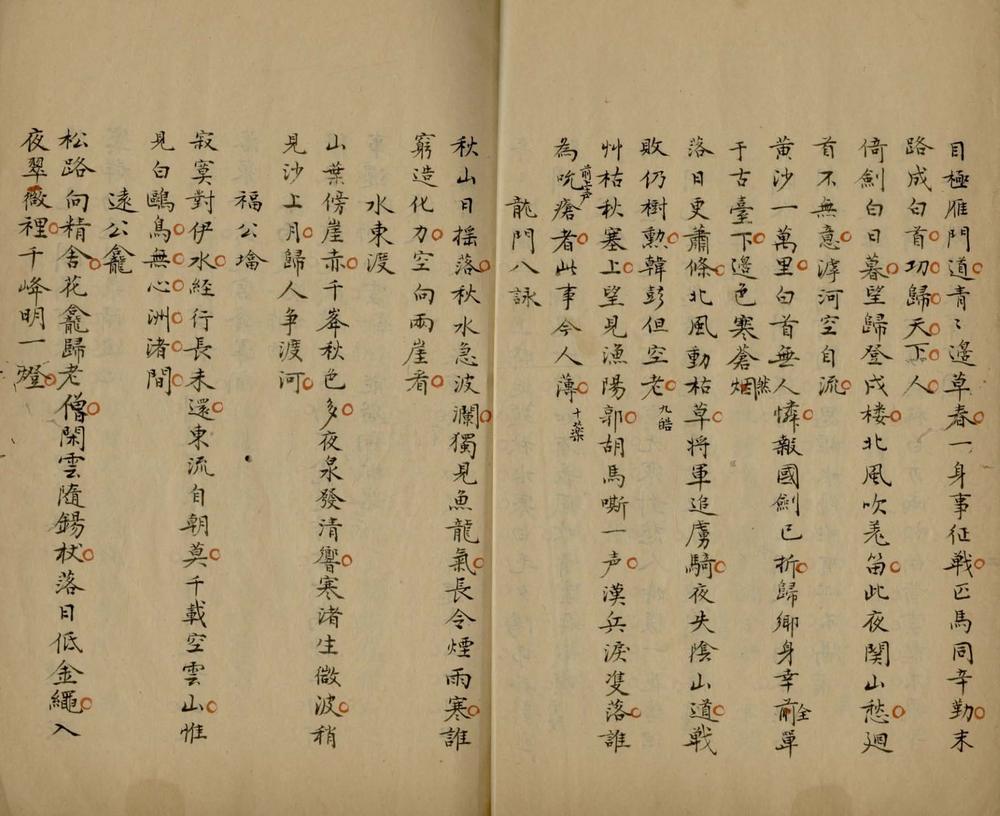 目極雁門道青〻邊草春一身事征戰匹馬同辛勤末
路成白首功歸天下人
倚劍白日暮望歸登戍楼北風吹羗笛此夜関山愁廻
首不無意滹河空自流
黄沙一萬里白首無人憐報國劍已折歸鄉身幸前全單
于古臺下邊色寒蒼烟然
落日更蕭條北風動枯草將軍追虜騎夜失陰山道戰
敗仍樹勲韓彭但空老 九皓
艸枯秋塞上望見漁陽郭胡馬嘶一声漢兵淚雙落誰
為吮瘡者此事令人薄 十藥
龍門八詠
秋山日搖落秋水急波瀾獨見魚龍氣長令煙雨寒誰
窮造化力空向兩崖看
水東渡
山葉傍崖赤千峯秋色多夜泉發清響寒渚生微波稍
見沙上月歸人争渡河
福公塔
寂寞對伊水経行長未還東流自朝莫千載空雲山惟
見白鷗鳥無心洲渚間
遠公龕
松路向精舍花龕歸老僧閑雲隨錫杖落日低金繩入
夜翠微裡千峰明一燈